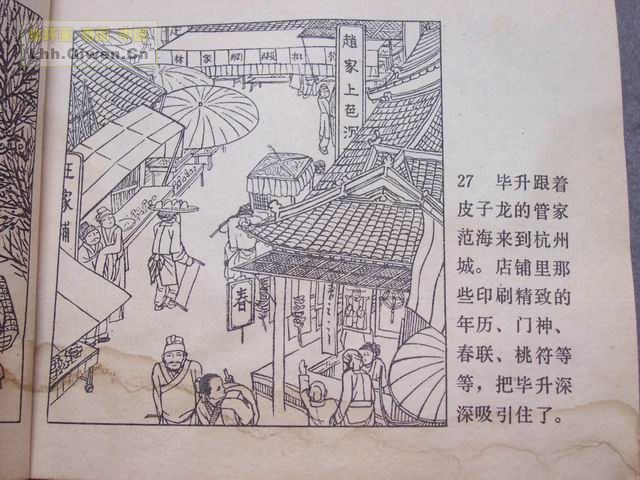 Lhh.Ciwen.Cn
趙家上芭河
林家
王家鋪
春
27 毕升跟着
皮子龙的管家
范海来到杭州
城。店铺里那
些印刷精致的
年历、门神、
春联、桃符等
等，把毕升深
深吸引住了。